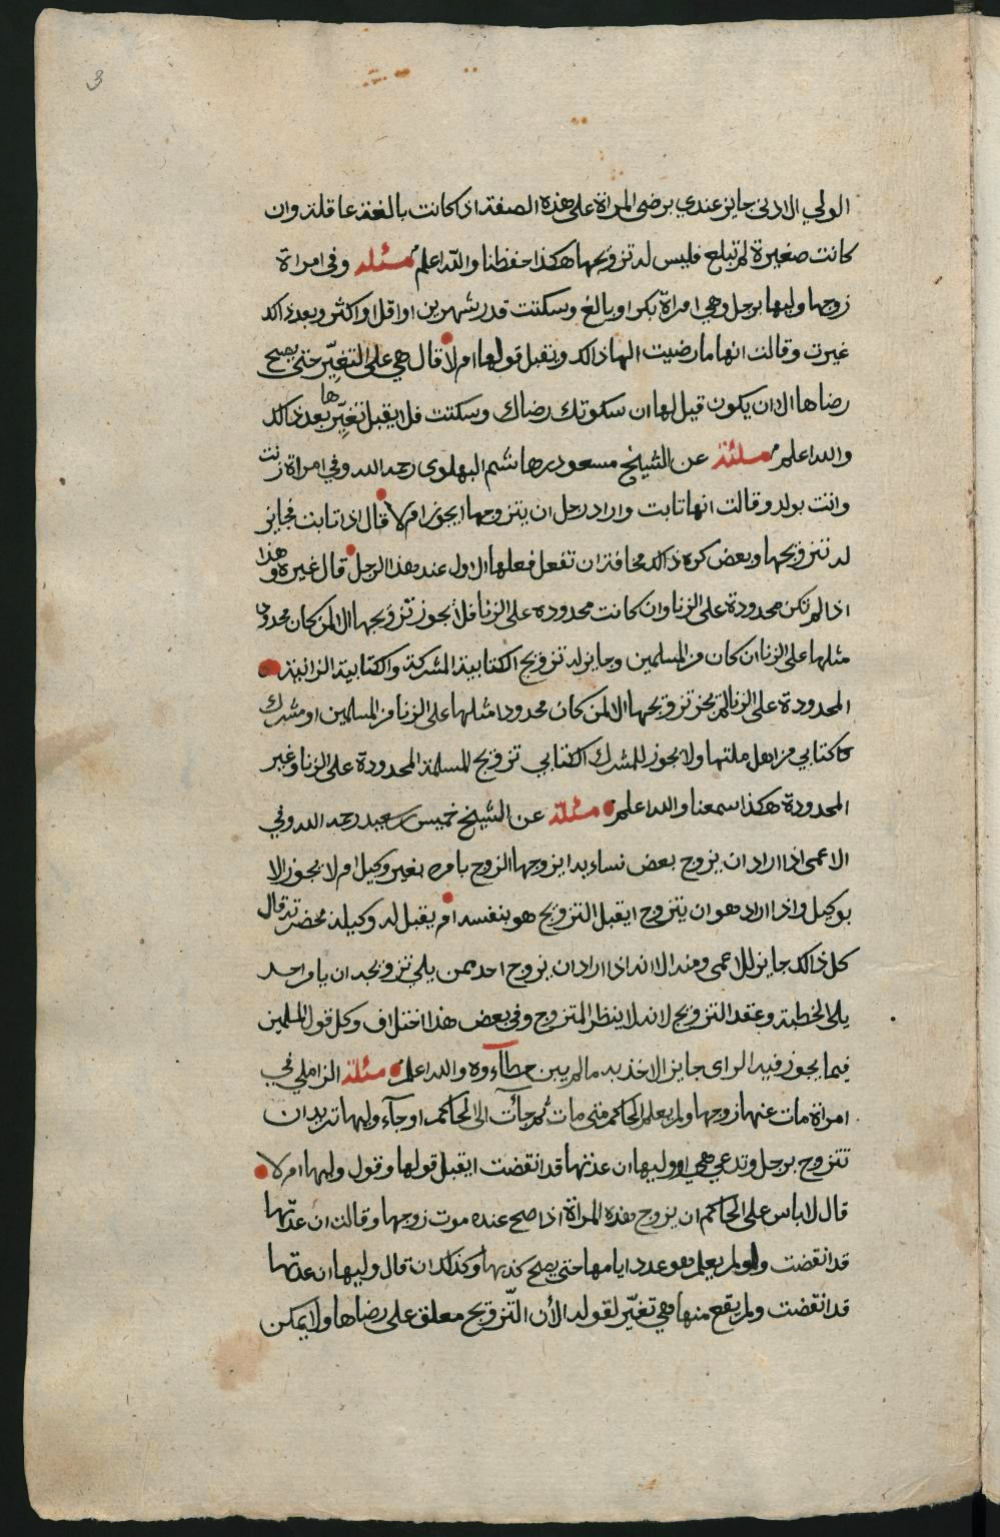 3
الولي الادنى جايز عندي برضى المراة على هذه الصفة اذا كانت بالغة عاقلة وان
كانت صغيرة لم تبلع فليس له تزويجها هكذا حفظنا والله اعلم مسئله وفي امراة
زوجها وليها برجل وهي امراة بكر او بالغ وسكتت قدر شهرين او اقل او اكثر وبعد ذالك
غيرت وقالت انها ما رضيت الها ذالك ويقبل قولها ام لا قال هي على التغيّر حتى يصح
رضاها الا ان يكون قيل لها ان سكوتك رضاك وسكتت فلا يقبل تغيّرها بعد ذالك
والله اعلم مسئلة عن الشيخ مسعود بن هاشم البهلوى رحمه الله وفي امراة زنت
واتت بولد وقالت انها تابت واراد رجل ان يتزوجها ايجوز ام لا قال اذا تابت فجايز
له تزويجها وبعض كره ذالك مخافة ان تفعل فعلها الاول عند هذا الرجل قال غيره وهذا
اذا لم تكن محدودة على الزنا وان كانت محدوده على الزنا فلا يجوز تزويجها الا لمن كان محدود
مثلها على الزنا ان كان من المسلمين وجايز له تزويج الكتابية المشركة والكتابية الزانية
المحدودة على الزنا لم يجز تزويجها الا لمن كان محدودا مثلها على الزنا من المسلمين او مشرك
كاكتابي من اهل ملتها ولا يجوز للمشرك الكتابي تزويج المسلمة المحدودة على الزنا وغير
المحدودة هكذا سمعنا والله اعلم مسئلة عن الشيخ خميس بن سعيد رحمه الله وفي
الاعمى اذا اراد ان يزوج بعض نساءه ايزوجها الزوج بامره بغير وكيل ام لا يجوز الا
بوكيل واذا اراد هو ان يتزوج ايقبل التزويج هو بنفسه ام يقبل له وكيله محضرته قال
كل ذالك جايز للاعمى ومنه الا انه اذا اراد ان يزوج احد ممن يلي تزويجه ان يامر احد
يلي الخطبة وعقد التزويج لانه لا ينظر المتزوج وفي بعض هذا اختلاف وكل قول المسلمين
فيما يجوز فيه الراى جايز الاخذ به ما لم يبين خطآءوه والله اعلم مسئلة الزاملي في
امراة مات عنها زوجها ولم يعلم الحاكم متى مات ثم جآت الى الحاكم او جآء وليها تريد ان
تتزوج برجل وتدعي هي او وليها ان عدتها قد انقضت ايقبل قولها وقول وليها ام لا
قال لا باس على الحاكم ان يزوج هذه المراة اذا صح عنده موت زوجها وقالت ان عدّتها
قد انقضت ولو لم يعلم هو عدد ايامها حتى يصح كذبها وكذلك ان قال وليها ان عدتها
قد انقضت ولم يقع منها هي تغيّر لقوله لأن التّزويج معلق على رضاها ولا يمكن